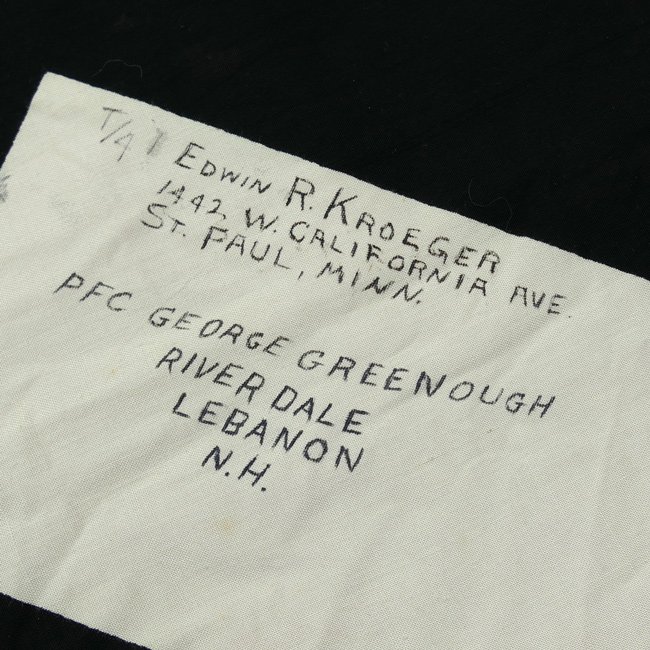 T/4 EDWIN R. KROEGER
1442 W. CALIFORNIA AVE.
ST. PAUL, MINN.
PFC GEORGE GREENOUGH
RIVER DALE
LEBANON
N.H.